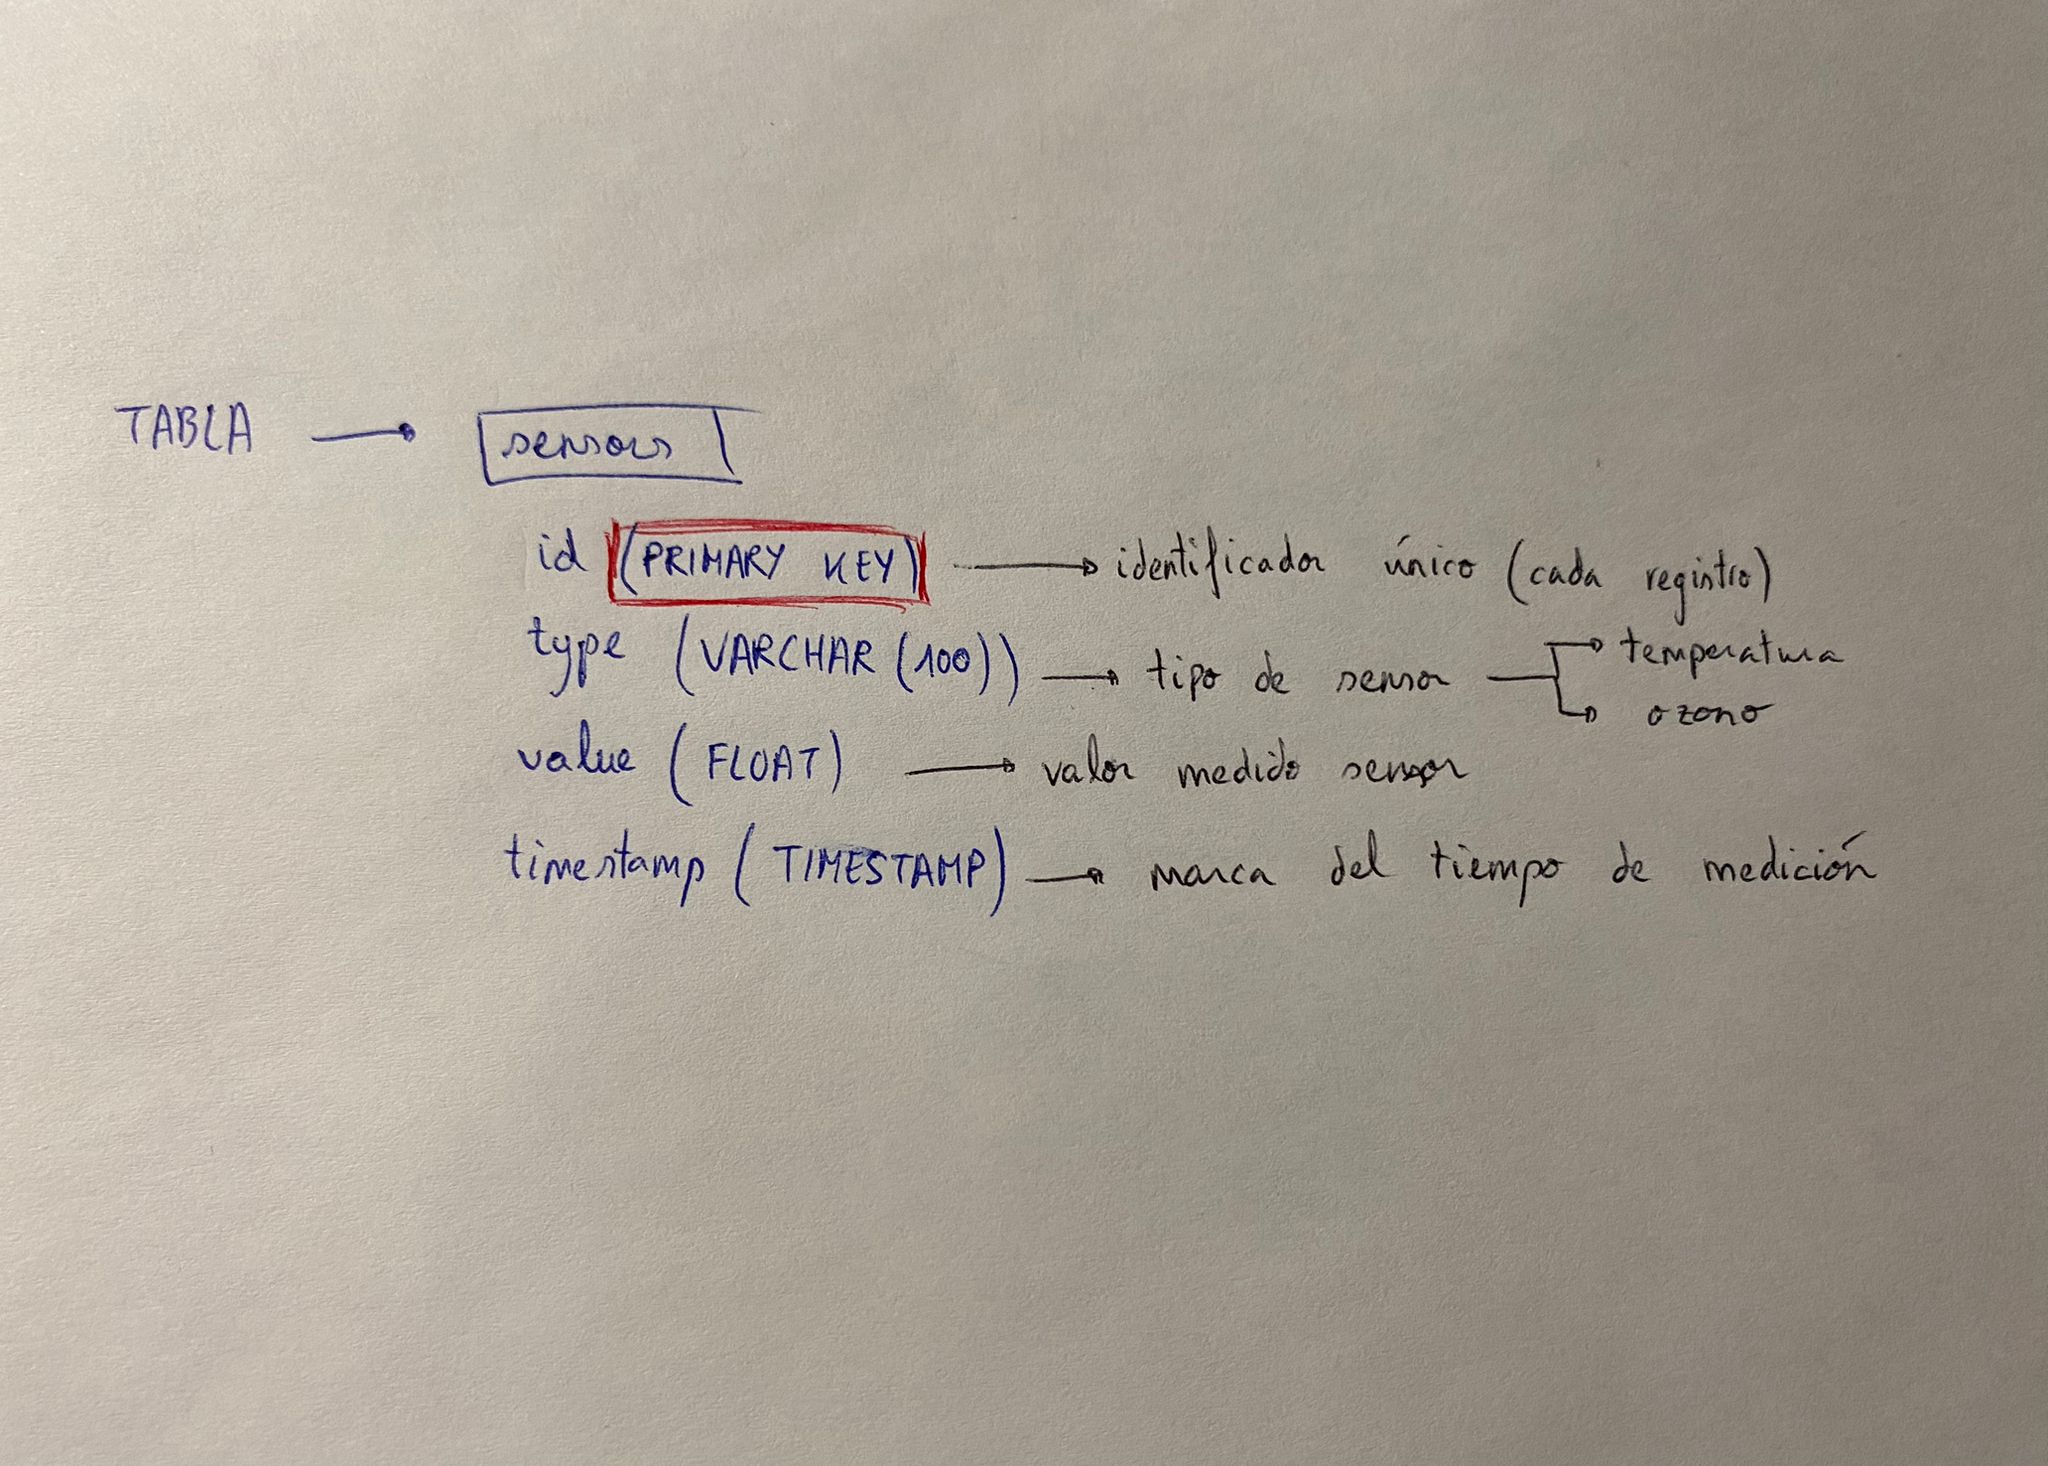 TABLA → sensors
id (PRIMARY KEY) → identificador único (cada registro)
type (VARCHAR (100)) → tipo de sensor → temperatura
→ ozono
value (FLOAT) → valor medido sensor
timestamp (TIMESTAMP) → marca del tiempo de medición